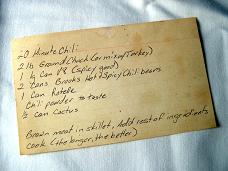 20 Minute Chili:
2 lb Ground Chuck (or mix w/Turkey)
1 lg Can V8 (spicy good)
2 Cans Brooks Hot & Spicy Chili beans
1 Can Rotelle
Chili powder to taste
½ can Cactus
Brown meat in skillet, Add rest of ingredients
cook (the longer, the better)